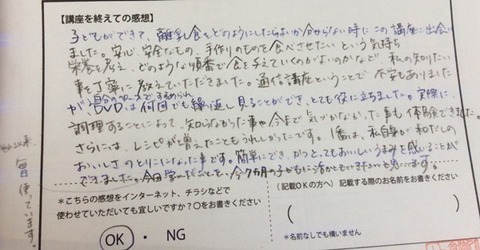 【講座を終えての感想】
子どもができて、離乳食をどのようにしたらよいか分からない時にこの講座に出会い
ました。安心、安全なもの、手作りのものを食べさせたいという気持ち
栄養を考え、どのような順番で食を与えていくのがよいのかなど、私の知りたい
事を丁寧に教えていただきました。通信講座ということで不安もありました
が、自分のペースで進められ
DVDは何回でも繰り返し見ることができ、とても役に立ちました。実際に
調理することによって、知らなかった事や今まで気づかなかった事も体験できました。
さらには、レシピが増えたこともうれしかったです。1番は、私自身が和だしの
おいしさのとりこになった事です。簡単にでき、かつとってもおいしいうまみを感じることが
できました。今回学んだことを、今7ヶ月の子どもに
毎日使っています。
*こちらの感想をインターネット、チラシなどで
使わせていただいても宜しいですか?○をお書きください
OK ・ NG
(記載OKの方へ) 記載する際のお名前をお書きください
( )
*名前なしでも構いません